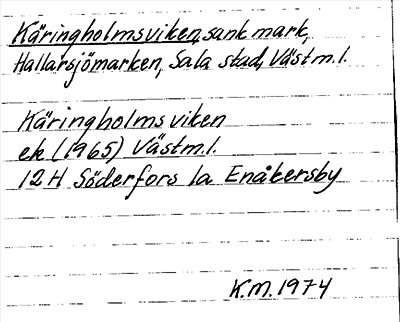 Käringholmsviken, sank mark,
Hallarsjömarken, Sala stad, Västm.l.
Käringholmsviken
ek (1965) Västm.l.
12H Söderfors 1a Enåkersby
K.M. 1974